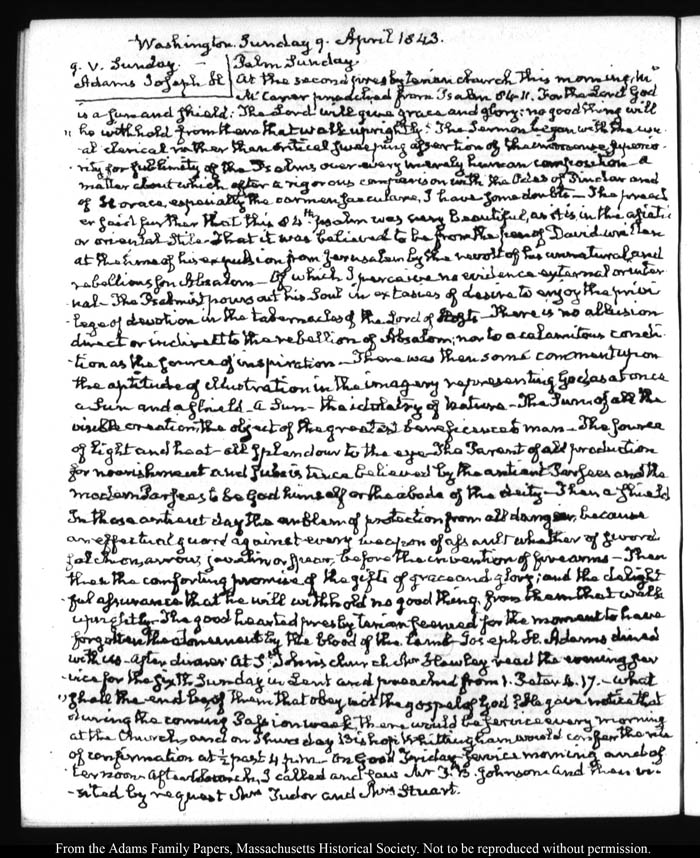 Washington. Sunday 9. April 1843.
9. V. Sunday. Palm Sunday.
Adams Joseph H At the second presbyterian church this morning, Mr
McCarer preached from Psalm 84.11. For the Lord God
is a sun and shield: The Lord will give grace and glory; no good thing will
he withhold from them that walk uprightly. The Sermon began with the usu-
al clerical rather than critical sweeping assertion of the immense superio-
rity for sublimity of the Psalms over every merely human composition. a
matter about which after a rigorous comparison with the Odes of Pindar and
of Horace, especially the carmen saeculare, I have some doubts — The preach-
er said further that this 84th psalm was very beautiful, as it is in the asiatic
or oriental stile. That it was believed to be from the pen of David written
at the time of his expulsion from Jerusalem by the revolt of his unnatural and
rebellious son Absalom — Of which I perceive no evidence external or inter-
nal — The Psalmist pours out his Soul in extasies of desire to enjoy the privi-
lege of devotion in the tabernacles of the Lord of Hosts — There is no allusion
direct or indirect to the rebellion of Absalom; nor to a calamitous condi-
tion as the source of inspiration — There was then some comment upon
the aptitude of illustration in the imagery representing God as at once
a Sun and a Shield — a Sun — the idolatry of Nature — The Sum of all the
visible creation, the object of the greatest beneficence to man — The source
of light and heat — all splendour to the eye — The Parent of all production
for nourishment and subsistence believed by the antient Parsees and the
modern Parsees to be God himself or the abode of the deity — Then a Shield
In those antient day the emblem of protection from all danger, because
an effectual guard against every weapon of assault whether of sword
falchion, arrow, javelin or spear, before the invention of fire arms — Then
then the comforting promise of the gifts of grace and glory; and the delight-
ful assurance that he will withhold no good thing, from them that walk
uprightly. The good hearted presbyterian seemed for the moment to have
forgotten the atonement by the blood of the Lamb. Joseph H. Adams dined
with us. After dinner at St John's church Mr Hawley read the evening ser-
vice for the sixth Sunday in Lent and preached from 1. Peter 4. 17. — what
shall the end be of them that obey not the gospel of God? He gave notice that
during the coming Passion week there would be service every morning
at the Church, and on Thursday Bishop Whittingham would confer the rite
of confirmation at ½ past 4 p.m. — On Good Friday service morning and af-
ternoon. After church, I called and saw Mr J. B. Johnson and then vi-
sited by request Mrs Tudor and Mrs Stuart.
From the Adams Family Papers, Massachusetts Historical Society. Not to be reproduced without permission.